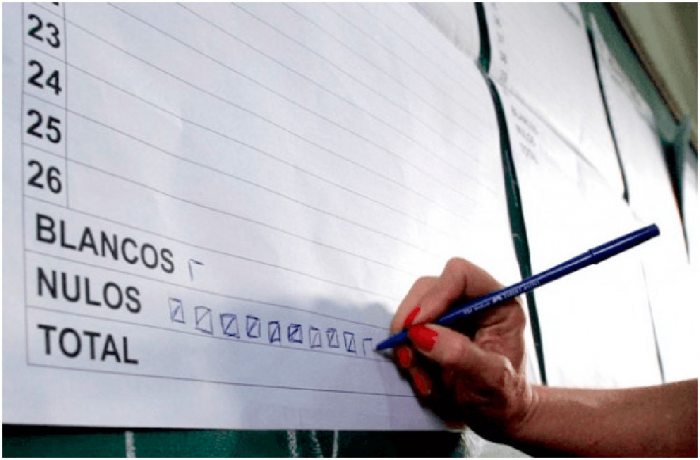 23
24
25
26
BLANCOS
NULOS
TOTAL